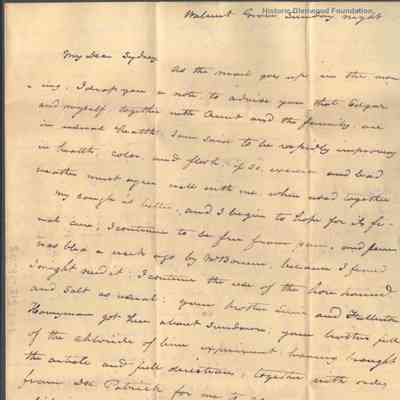 Historic Glenwood Foundation,
Walnut Grove Sunday night
My Dear Sydney
As the mail goes up in the mor
ning, I drop you a note, to advise you that Edgar
and myself, together with Aunt and the family, are
in usual health. I am said to be rapidly improving
in health, color and flesh, if so, exercise and bad
weather must agree well with me, when used together
My cough is better, and I begin to hope for its fi-
nal cure; I continue to be free from pain, and fever
was bled a week ago by Dr Bowen, because I feared
I might need it; I continue the use of the hore hound
and salt as usual; your brother and
got here about Sundown; your brother full
of the chloride of lime experiment having brought
the article and full directions; together with orders
from Doc Patrick for me to